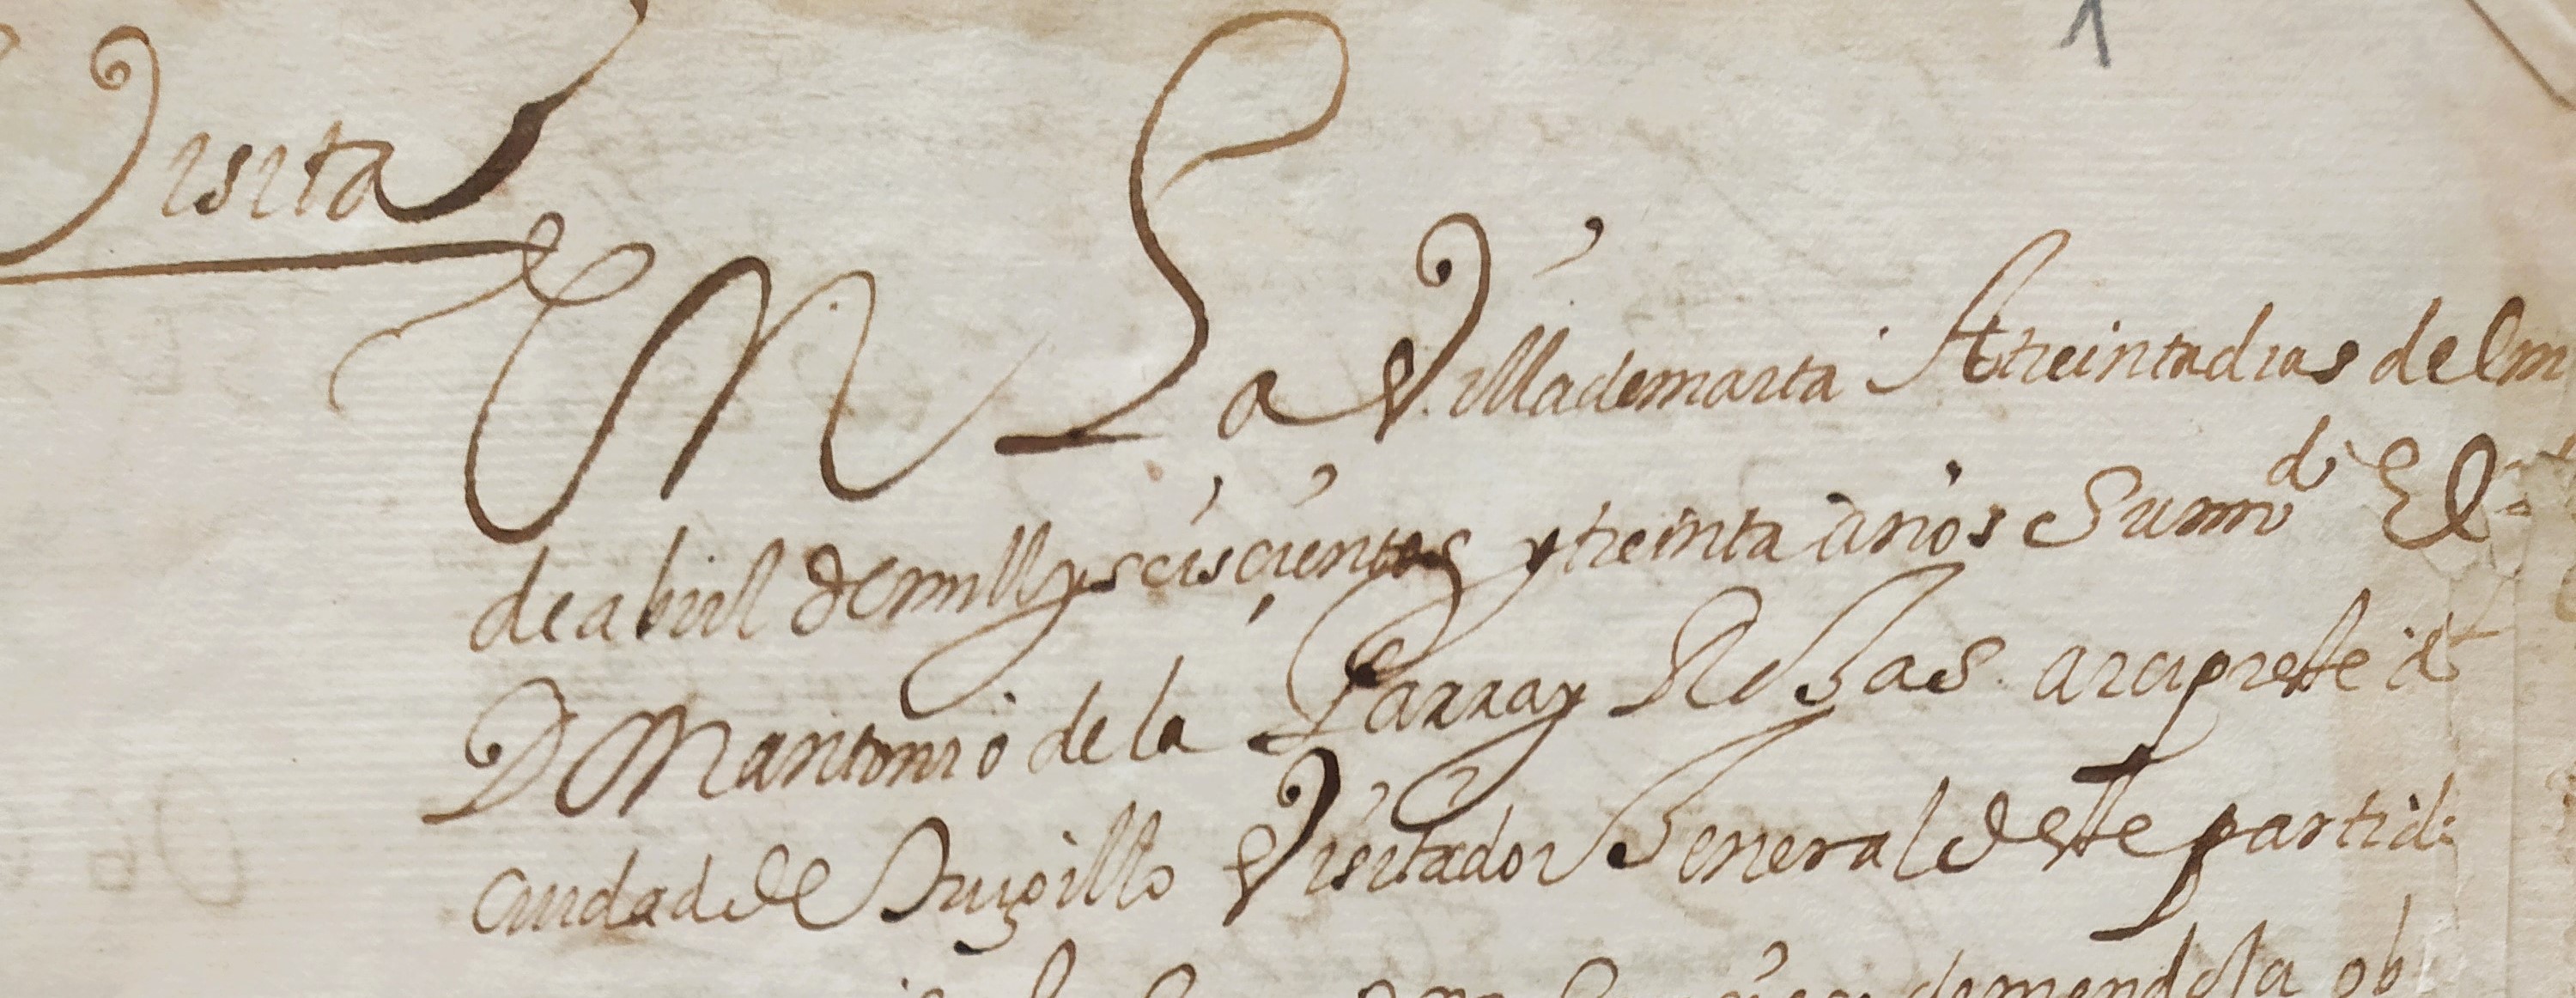 1
Visita
En La Villa de marta A treinta dias del m
de abril de mill y seiscientos y treinta años Su md El
D M antonio de la Parra y Rojas arcipreste de
ciudad de Trugillo Visitador General deste partid
de mend sta ob